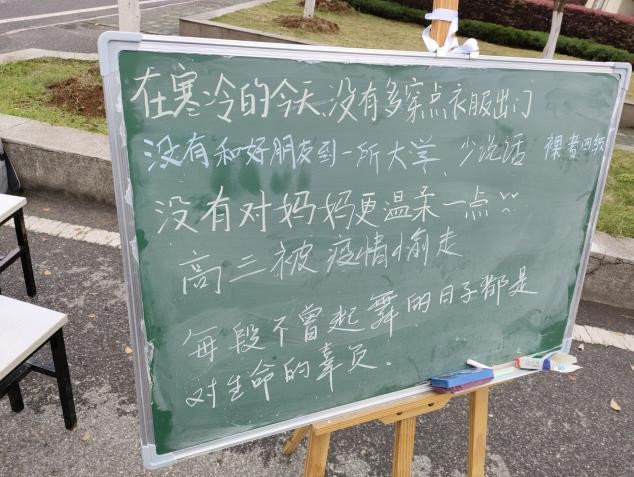 在寒冷的今天,没有多穿点衣服出门
没有和好朋友到一所大学、少说话 裸考四级
没有对妈妈更温柔一点
高三被疫情偷走
每段不曾起舞的日子都是
对生命的辜负.